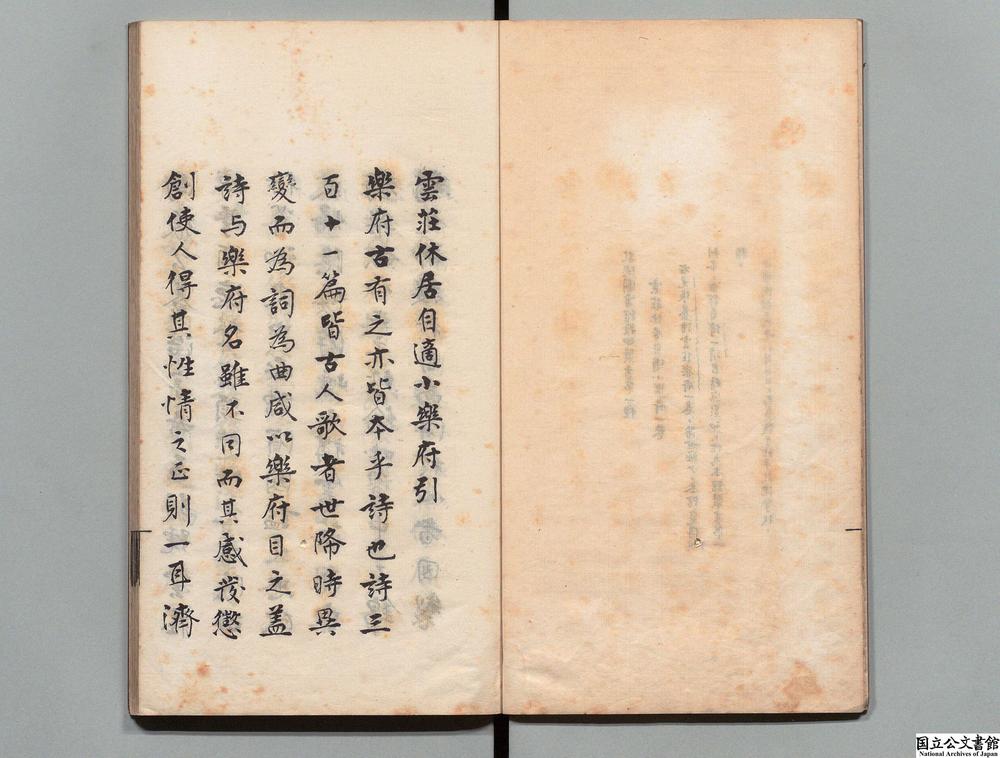 雲莊休居自適小樂府引
樂府古有之亦皆本乎詩也詩三
百十一篇皆古人歌者世降時異
變而為詞為曲咸以樂府目之盖
詩与樂府名雖不同而其感發懲
創使人得其性情之正則一耳濟
国立公文書館
National Archives of Japan